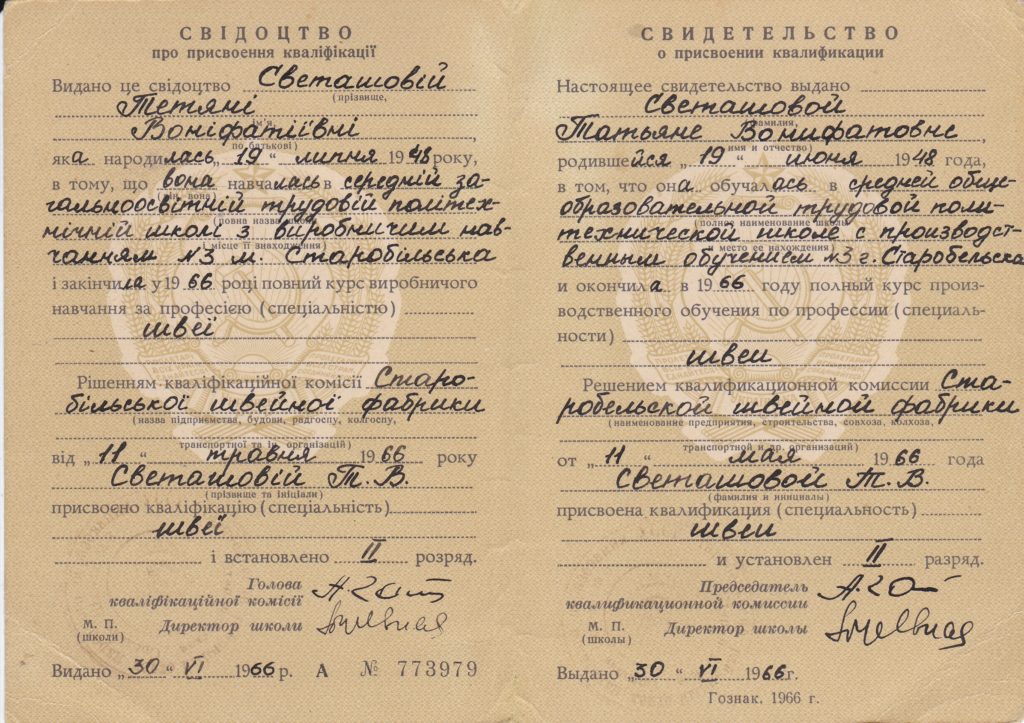 СВІДОЦТВО
про присвоєння кваліфікації
Видано це свідоцтво Светашовій
(прізвище,
Тетяні
ім'я,
Воніфатіївні
по батькові)
яка народилась „19“ липня 1948 року,
в тому, що вона навчалась в середній за-
він, вона
гальноосвітній трудовій політех-
(повна назва
нічній школі з виробничим нав-
місце її знаходження)
чанням №3 м. Старобільська
і закінчила у 1966 році повний курс виробничого
навчання за професією (спеціальністю)
швеї
Рішенням кваліфікаційної комісії Старо-
більської швейної фабрики
(назва підприємства, будови, радгоспу, колгоспу,
транспортної та ін. організацій)
від „11“ травня 1966 року
Светашовій Т. В.
(прізвище та ініціали)
присвоєно кваліфікацію (спеціальність)
швеї
і встановлено II розряд.
Голова
кваліфікаційної комісії
М. П.
(школи)
Директор школи
Видано „30“ VI 1966 р. А № 773979
СВИДЕТЕЛЬСТВО
о присвоении квалификации
Настоящее свидетельство выдано
Светашовой
фамилия,
Татьяне Вонифатовне
имя и отчество)
родившейся „19“ июня 1948 года,
в том, что она обучалась в средней обще-
образовательной трудовой поли-
полное наименование школы
технической школе с производст-
и место ее нахождения)
венным обучением №3 г. Старобельска
и окончила в 1966 году полный курс произ-
водственного обучения по профессии (специаль-
ности)
швеи
Решением квалификационной комиссии Ста-
робельской швейной фабрики
(наименование предприятия, строительства, совхоза, колхоза,
транспортной и др. организации)
от „11“ мая 1966 года
Светашовой Т. В.
(фамилия и инициалы)
присвоена квалификация (специальность)
швеи
и установлен II разряд.
Председатель
квалификационной комиссии
М. П.
(школы)
Директор школы
Выдано „30“ VI 1966 г.
Гознак, 1966 г.